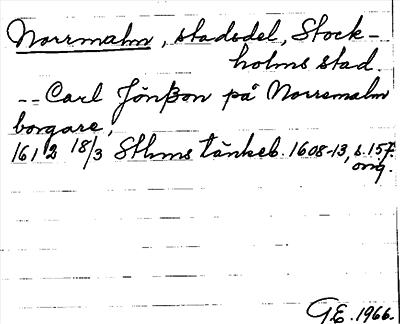 Norrmalm, stadsdel, Stock-
holms stad.
-- Carl Jönßon på Norremalm
borgare,
1612 18/3 Sthms tänkeb. 1608-13, s. 157.
orig.
G.E. 1966.